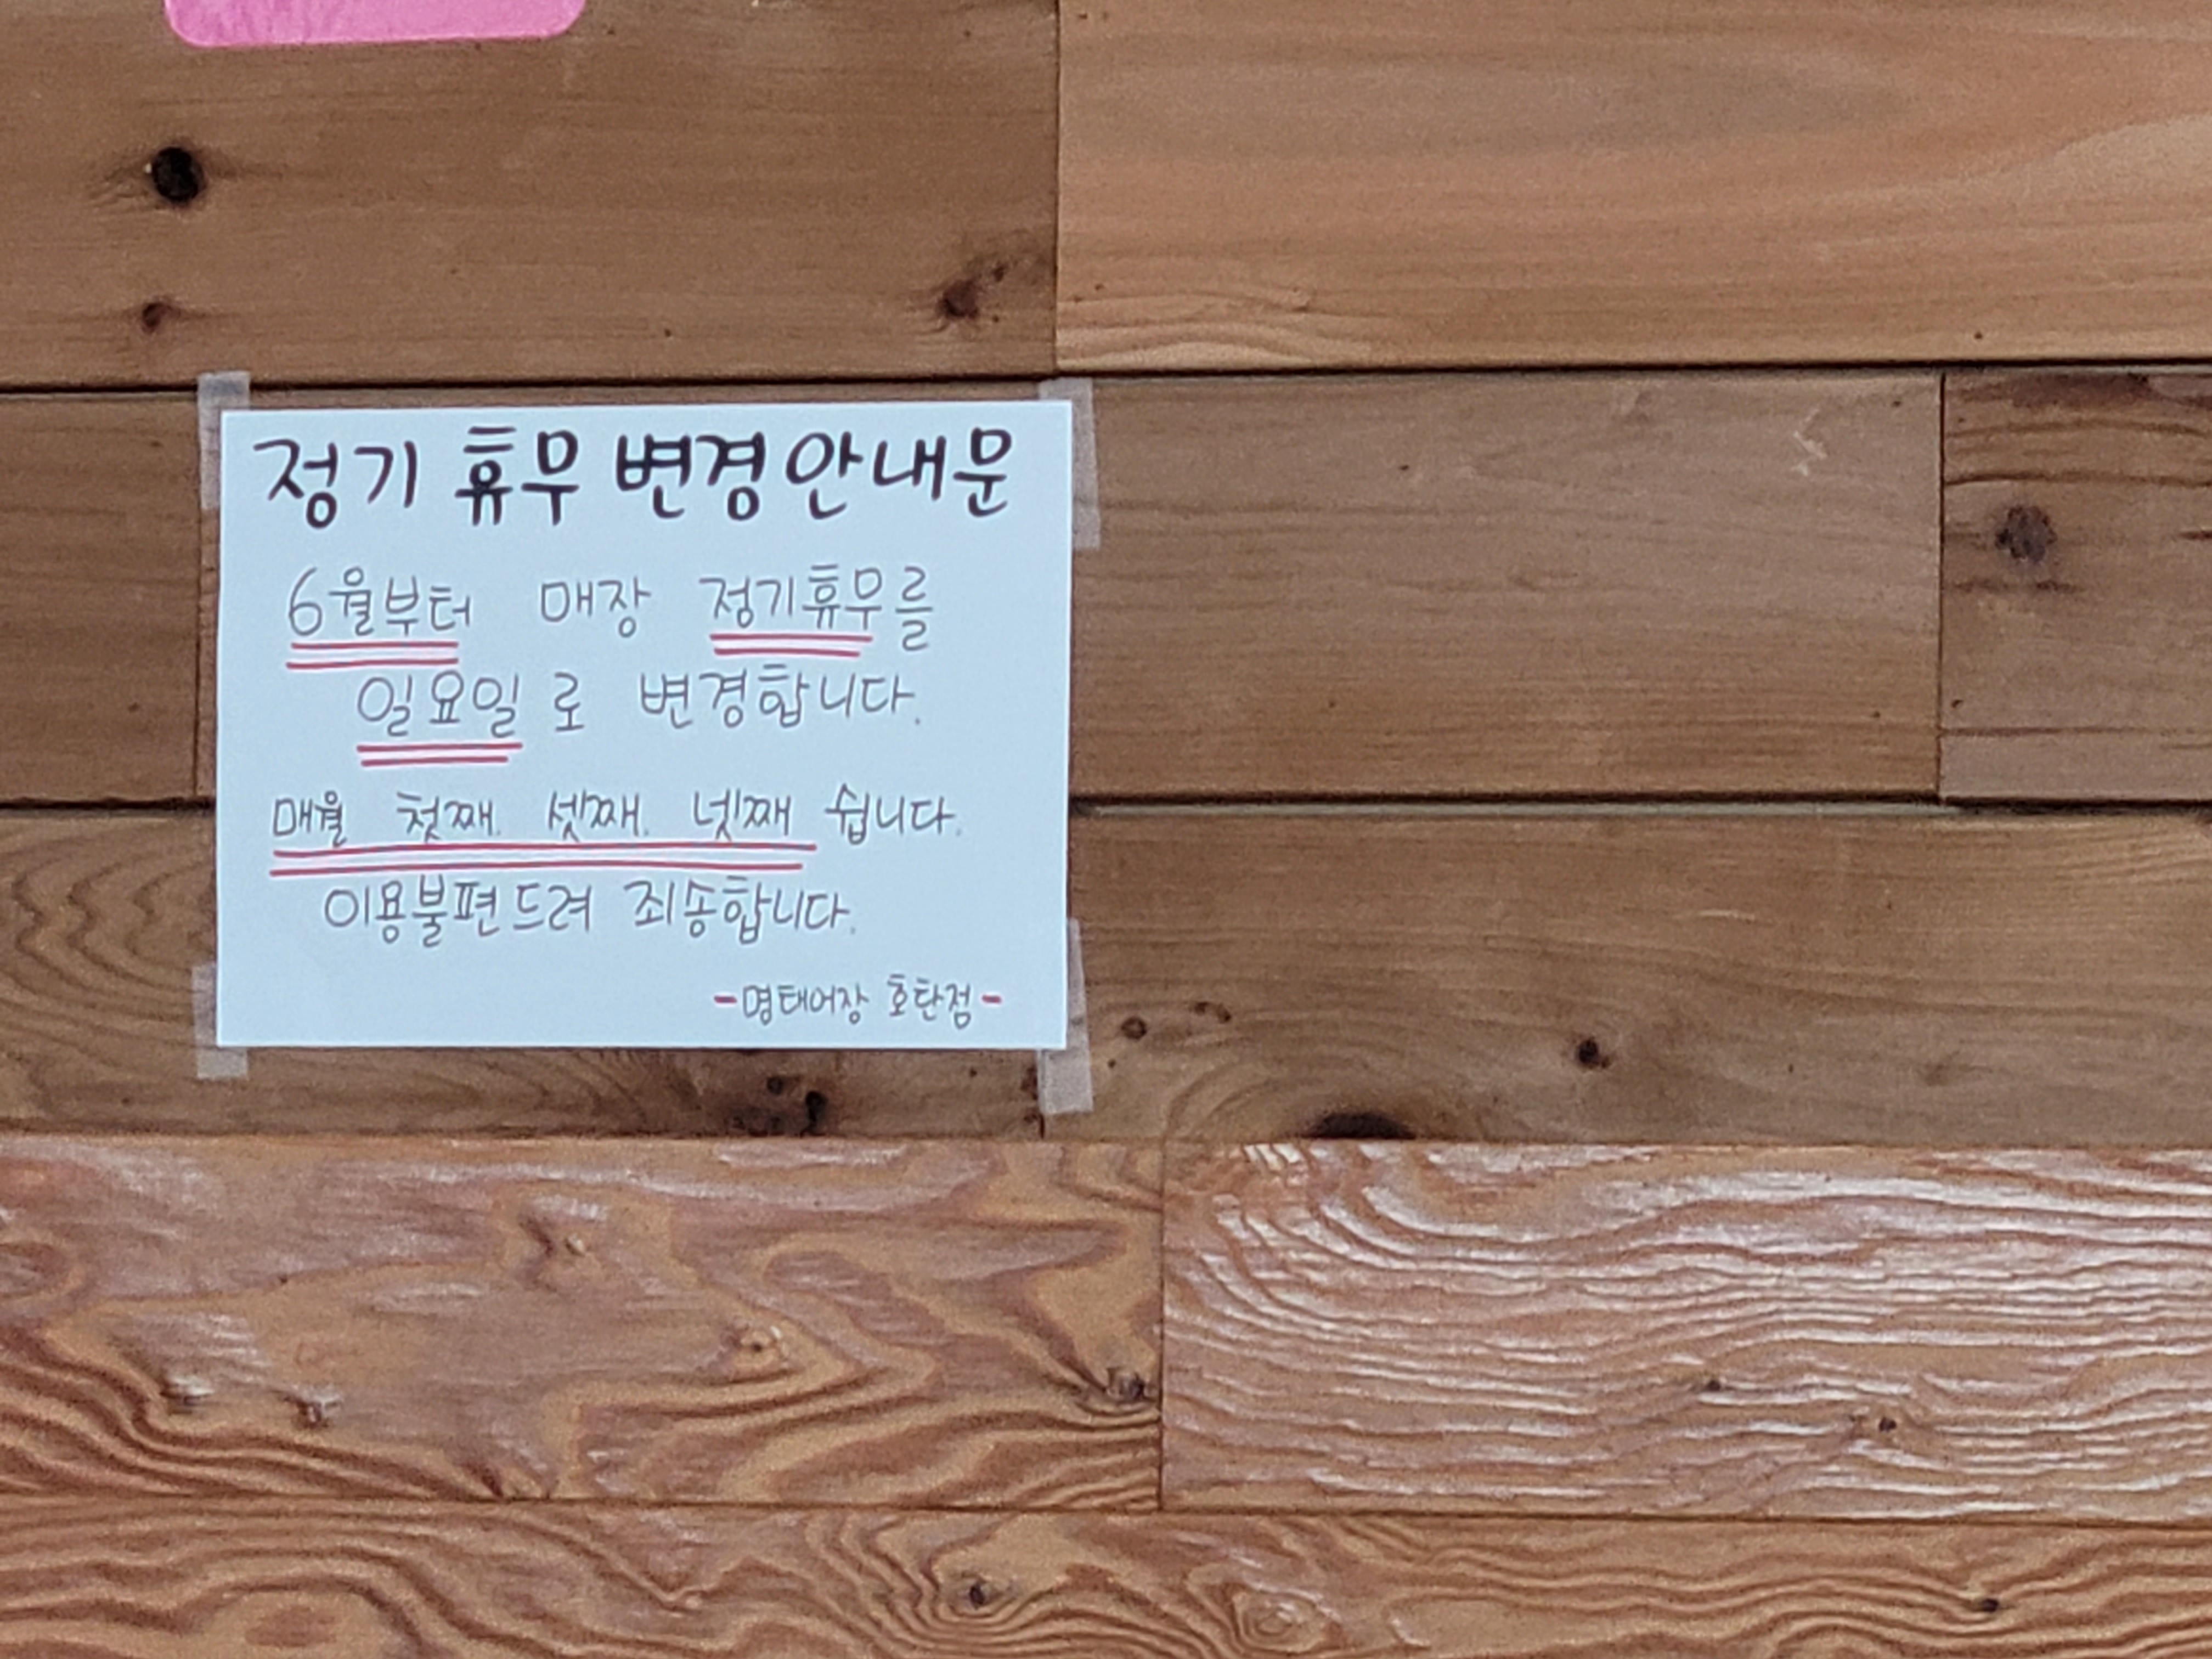 정기 휴무 변경안내문
6월부터 매장 정기휴무를
일요일로 변경합니다.
매월 첫째. 셋째. 넷째 쉽니다.
이용불편드려 죄송합니다.
-명태어장 호탄점-